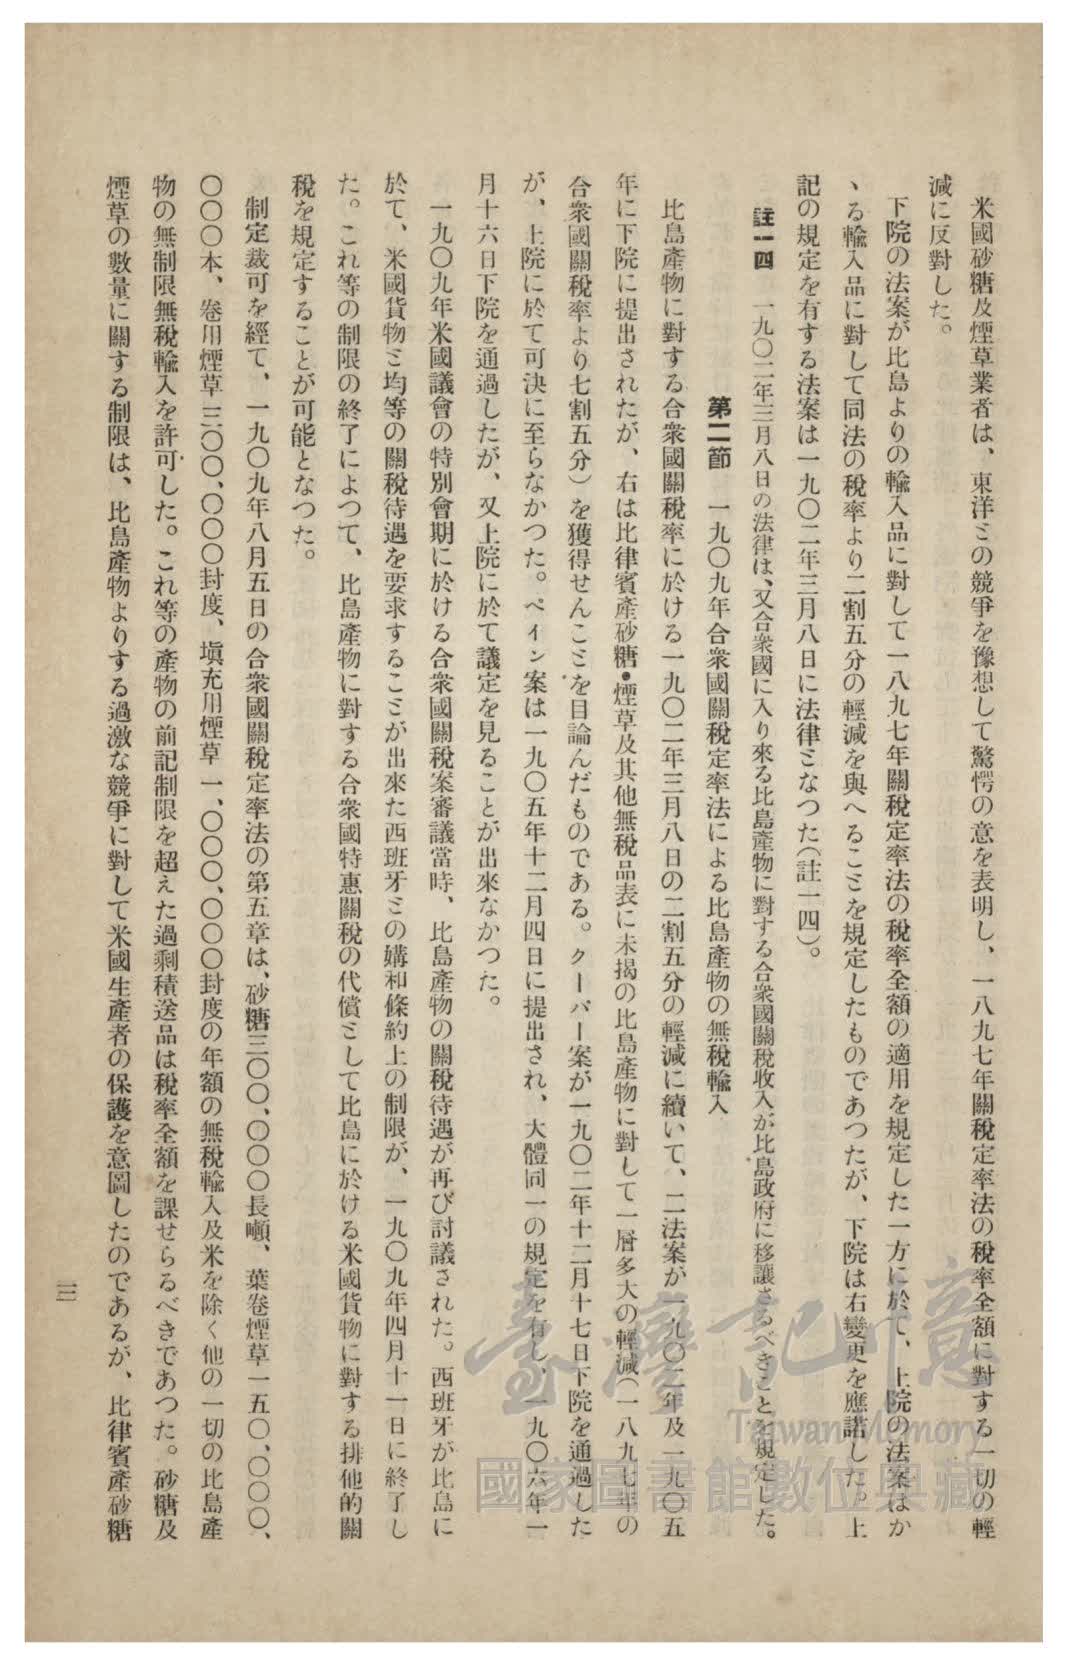 米國砂糖及煙草業者は、東洋との競爭を豫想して驚愕の意を表明し、一八九七年關稅定率法の稅率全額に對する一切の輕
減に反對した。
下院の法案が比島よりの輸入品に對して一八九七年關稅定率法の稅率全額の適用を規定した一方に於て、上院の法案はか
ゝる輸入品に對して同法の稅率より二割五分の輕減を與へることを規定したものであつたが、下院は右變更を應諾した。上
記の規定を有する法案は一九〇二年三月八日に法律となつた(註一四)。
註一四 一九〇二年三月八日の法律は、又合衆國に入り來る比島產物に對する合衆國關稅收入が比島政府に移讓さるべきことを規定した。
第二節 一九〇九年合衆國關稅定率法による比島產物の無稅輸入
比島產物に對する合衆國關稅率に於ける一九〇二年三月八日の二割五分の輕減に續いて、二法案が一九〇二年及一九〇五
年に下院に提出されたが、右は比律賓產砂糖•煙草及其他無稅品表に未揭の比島產物に對して一層多大の輕減(一八九七年の
合衆國關稅率より七割五分)を獲得せんことを目論んだものである。クーパー案が一九〇二年十二月十七日下院を通過した
が、上院に於て可決に至らなかつた。ペイン案は一九〇五年十二月四日に提出され、大體同一の規定を有し、一九〇六年一
月十六日下院を通過したが、又上院に於て議定を見ることが出來なかつた。
一九〇九年米國議會の特別會期に於ける合衆國關稅案審議當時、比島產物の關稅待遇が再び討議された。西班牙が比島に
於て、米國貨物と均等の關稅待遇を要求することが出來た西班牙との媾和條約上の制限が、一九〇九年四月十一日に終了し
た。これ等の制限の終了によつて、比島產物に對する合衆國特惠關稅の代償として比島に於ける米國貨物に對する排他的關
稅を規定することが可能となつた。
制定裁可を經て、一九〇九年八月五日の合衆國關稅定率法の第五章は、砂糖三〇〇、〇〇〇長噸、葉卷煙草一五〇、〇〇〇、
〇〇〇本、卷用煙草三〇〇、〇〇〇封度、塡充用煙草一、〇〇〇、〇〇〇封度の年額の無稅輸入及米を除く他の一切の比島產
物の無制限無稅輸入を許可した。これ等の產物の前記制限を超えた過剩積送品は稅率全額を課せらるべきであつた。砂糖及
煙草の數量に關する制限は、比島產物よりする過激な競爭に對して米國生產者の保護を意圖したのであるが、比律賓產砂糖
三一
臺灣記憶
Taiwan Memory
國家圖書館數位典藏